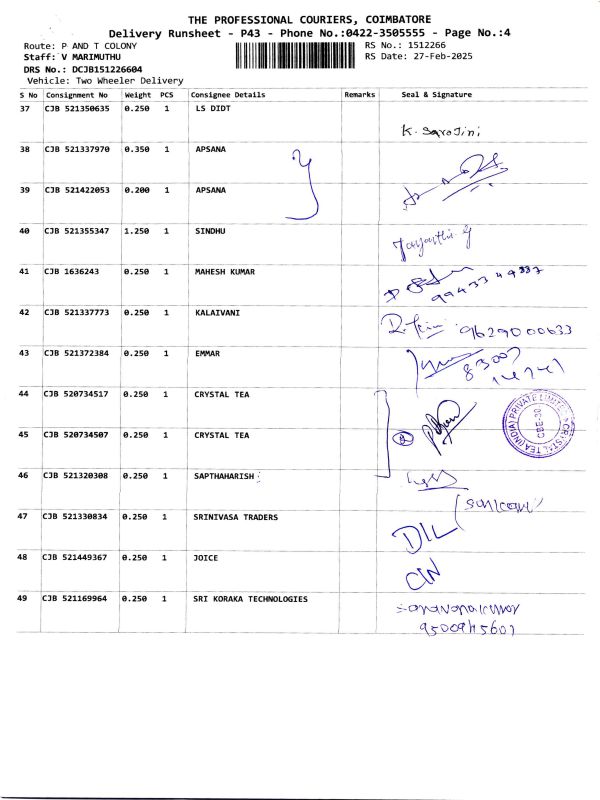 THE PROFESSIONAL COURIERS, COIMBATORE
Delivery Runsheet - P43 - Phone No.:0422-3505555 - Page No.:4
Route: P AND T COLONY
RS No.: 1512266
Staff: V MARIMUTHU
RS Date: 27-Feb-2025
DRS No.: DCJB151226604
Vehicle: Two Wheeler Delivery
S No Consignment No Weight PCS Consignee Details Remarks Seal & Signature
37 CJB 521350635 0.250 1 LS DIDT
K. Sarojini
38 CJB 521337970 0.350 1 APSANA
39 CJB 521422053 0.200 1 APSANA
40 CJB 521355347 1.250 1 SINDHU
Jayanthi G
41 CJB 1636243 0.250 1 MAHESH KUMAR
42 CJB 521337773 0.250 1 KALAIVANI
9629000633
43 CJB 521372384 0.250 1 EMMAR
83007
44 CJB 520734517 0.250 1 CRYSTAL TEA
CRYSTAL TEA (INDIA) PRIVATE LIMITED
CBE-38
45 CJB 520734507 0.250 1 CRYSTAL TEA
46 CJB 521320308 0.250 1 SAPTHAHARISH
47 CJB 521330834 0.250 1 SRINIVASA TRADERS
DIL
48 CJB 521449367 0.250 1 JOICE
49 CJB 521169964 0.250 1 SRI KORAKA TECHNOLOGIES
Saravanakumar